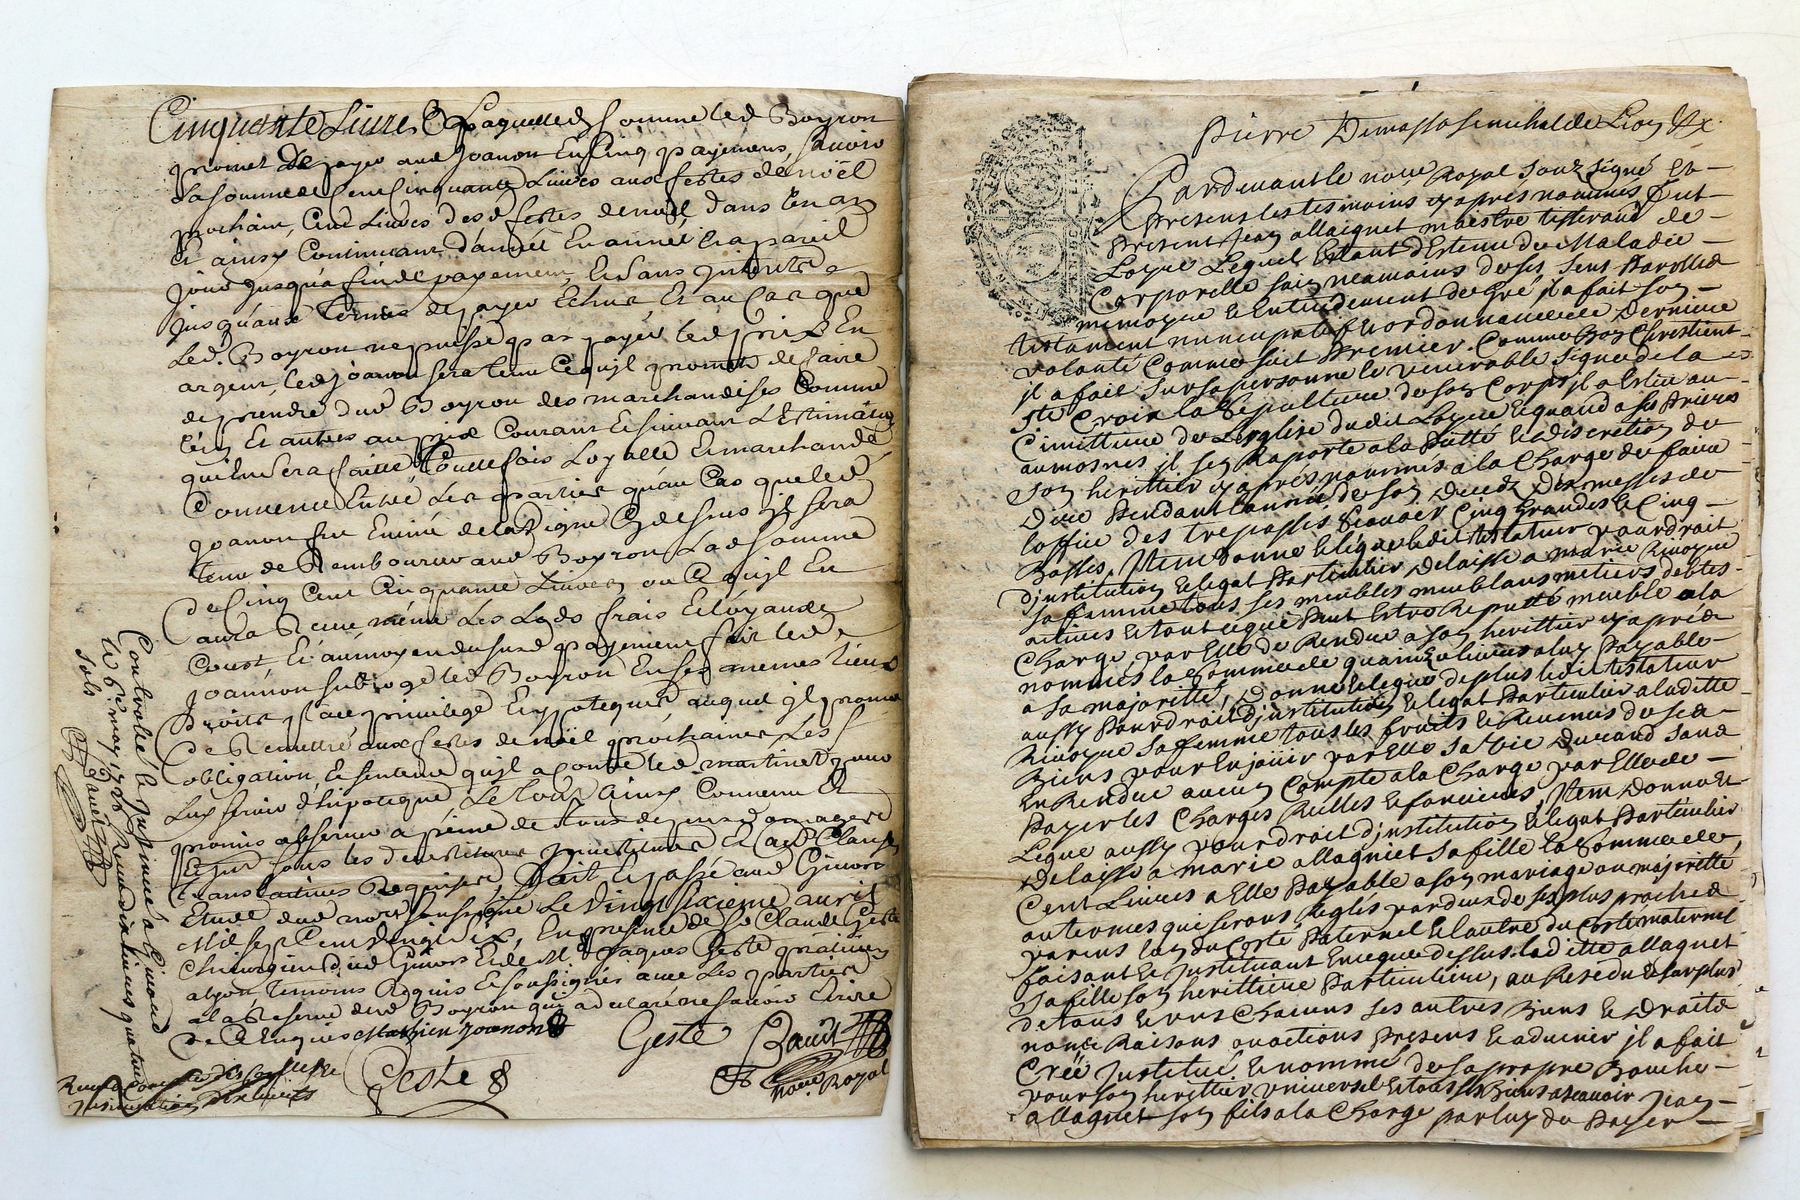 Cinquante Livres Laquelle somme led Boyron
promet de payer aud Joanon En Cinq payemens, savoir
La somme de Cent Cinquante Livres aux festes de noël
prochain, Cent Livres desd festes de noël dans Un an
Et ainsy Continuant d'année En année Et a pareil
Jour Jusqu'a fin de payement, Et sans Interets
Jusqu'aux Termes de payer Echus Et au Cas que
Led. Boyron ne puisse pas payer led prix En
argent, led Joanon sera tenu Ce qu'il promet de faire
de prendre dud Boyron des marchandises Comme
Et autres au prix Courant Et suivant L'Estimation
qui En sera faitte Touttefois Loyalle Et marchande
Convenu Entre Les parties qu'au Cas que led
Joanon fut Evincé de lad vigne Cy dessus il sera
tenu de Rembourser aud Boyron Lad somme
de Cinq Cent Cinquante Livres ou Ce qu'il En
aura Receu même Les Lods frais Et loyaux
Cousts Et au moyen du susd payement fait led
Joannon subroge led Boyron En ses memes Lieux
Droits place privilege Et ypoteques auquel il promet
de Remettre aux festes de noël prochaines Les
obligation Et sentence qu'il a contre led martinet pour
Luy servir d'hipoteque, Le tout ainsy Convenu Et
promis observer a peine de tous depens domages
Et sous les
Requises, fait Et passé aud Givors
Etude dud nore soussigné Le Vingt sixieme avril
Mil sept Cent Vingt six, En presence de Sr Claude Geste
Chirurgien dud Givors Et de M. Jaques Geste praticien
a Lyon Temoins Requis Et soussignés avec Les parties
a la Reserve dud Boyron qui a declaré ne savoir Ecrire
de Ce Enquis Mathieu Joanon
Geste
Bauïs
Geste
nore. Royal
Controllé & Insinué a Givord
le 6e may 1726 Receu dix livres quatre
sols
Bauïs
Pierre Demasso senechal de Lion &c.
Pardevant le nore Royal souz signé Et
Presens les tesmoins cy apres nommes fut
Present Jean allaignet maistre tisserand de
Loyre Lequel Estant d'Estenu de Maladie
Corporelle sain neamoins de ses sens Parolle
memoyre & Entendement de Gré il a fait son
testament nuncupatif & ordonnance de derniere
volonté Comme suit Premier. Comme Bon Chrestient
il a fait sur sa personne le venerable signe de la
Ste Croix la sepulture de son Corps il a Esleu au
Cimittiere de L'eglise dudit Loyre & quand a ses Prieres
aumosnes il s'en Raporte a la Pitté & discretion de
son herittier cy aprés nommés a la Charge de faire
Dire Pendant l'année de son deceds Dix messes de
l'office des trepassés scavoir Cinq Grandes & Cinq
Basses, Item donne & legue ledit testateur Pour droit
d'institution & legat Particulier delaisse a marie Rivoyre
sa femme tous ses meubles meublans metiers debtes
actives & tout ce que Peut Estre Reputté meuble a la
Charge par Elle de Rendre a son herittier cy aprés
nommés la somme de quainze livres a luy Payable
a sa majorité, donne & legue de plus ledit testateur
aussy Pour droit d'institution & legat Particulier a ladite
Rivoyre sa femme tous les fruits & Revenus de ses
Biens pour En jouir par Elle sa Vie durand sans
En Rendre aucun Compte a la Charge par Elle de
Payer les Charges Rielles & foncieres, Item donne &
Legue aussy pour droit d'institution & legat Particulier
Delaisse a marie allagniet sa fille la somme de
Cent Livres a Elle Payable a son mariage ou majorette
au termes qui seront Reglés par deux de ses plus proches
parens l'un du Costé Paternel & l'autre du Costé maternel
faisant & Instituant En ce que dessus laditte allagnet
sa fille son herittiere Particuliere, au Reste du & surplus
de tous & uns Chacuns ses autres Biens & Droits
noms Raisons ou actions Presens & advenir il a fait
Créé Institué & nommé de sa propre Bouche
pour son herittier universel & tous ses Biens a scavoir Jean
allagnet son fils a la Charge par luy de Payer